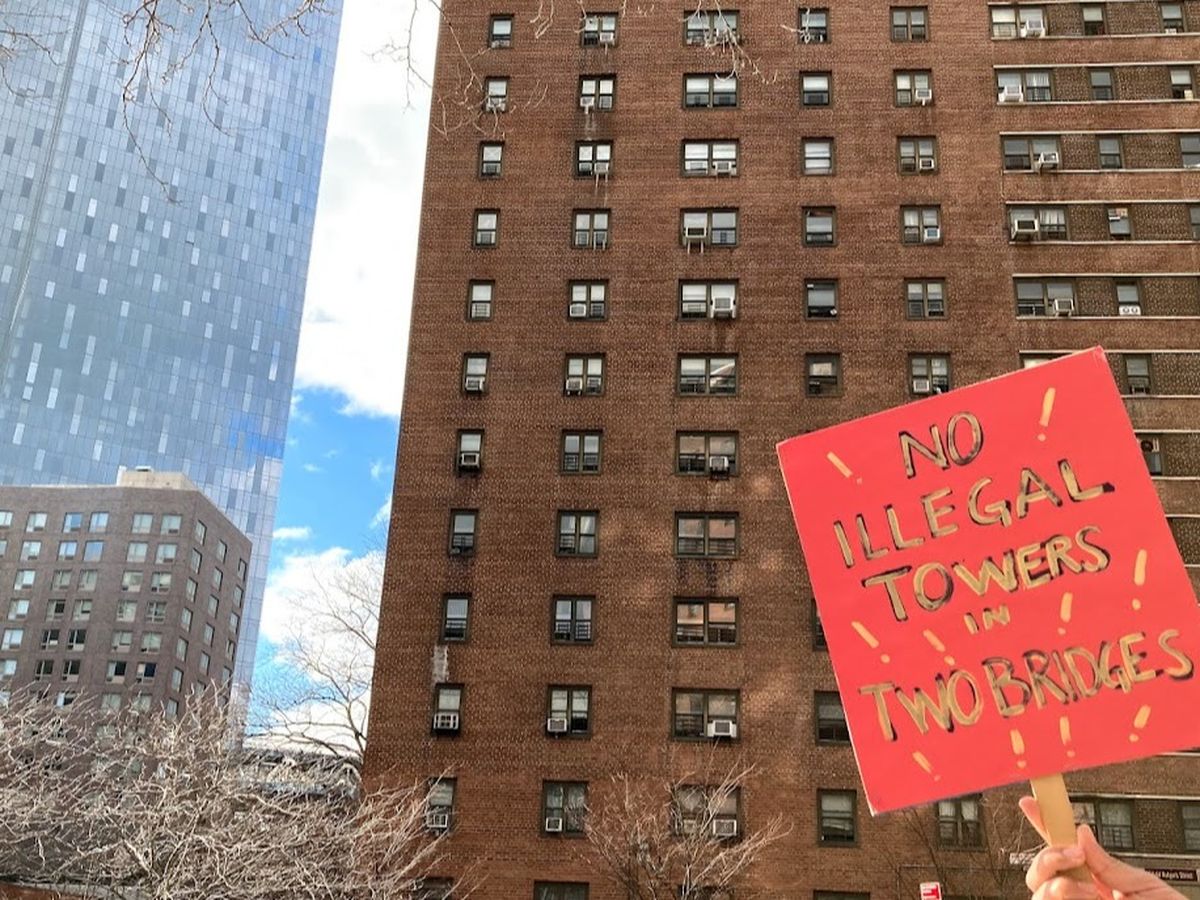 NO
ILLEGAL
TOWERS
IN
TWO BRIDGES